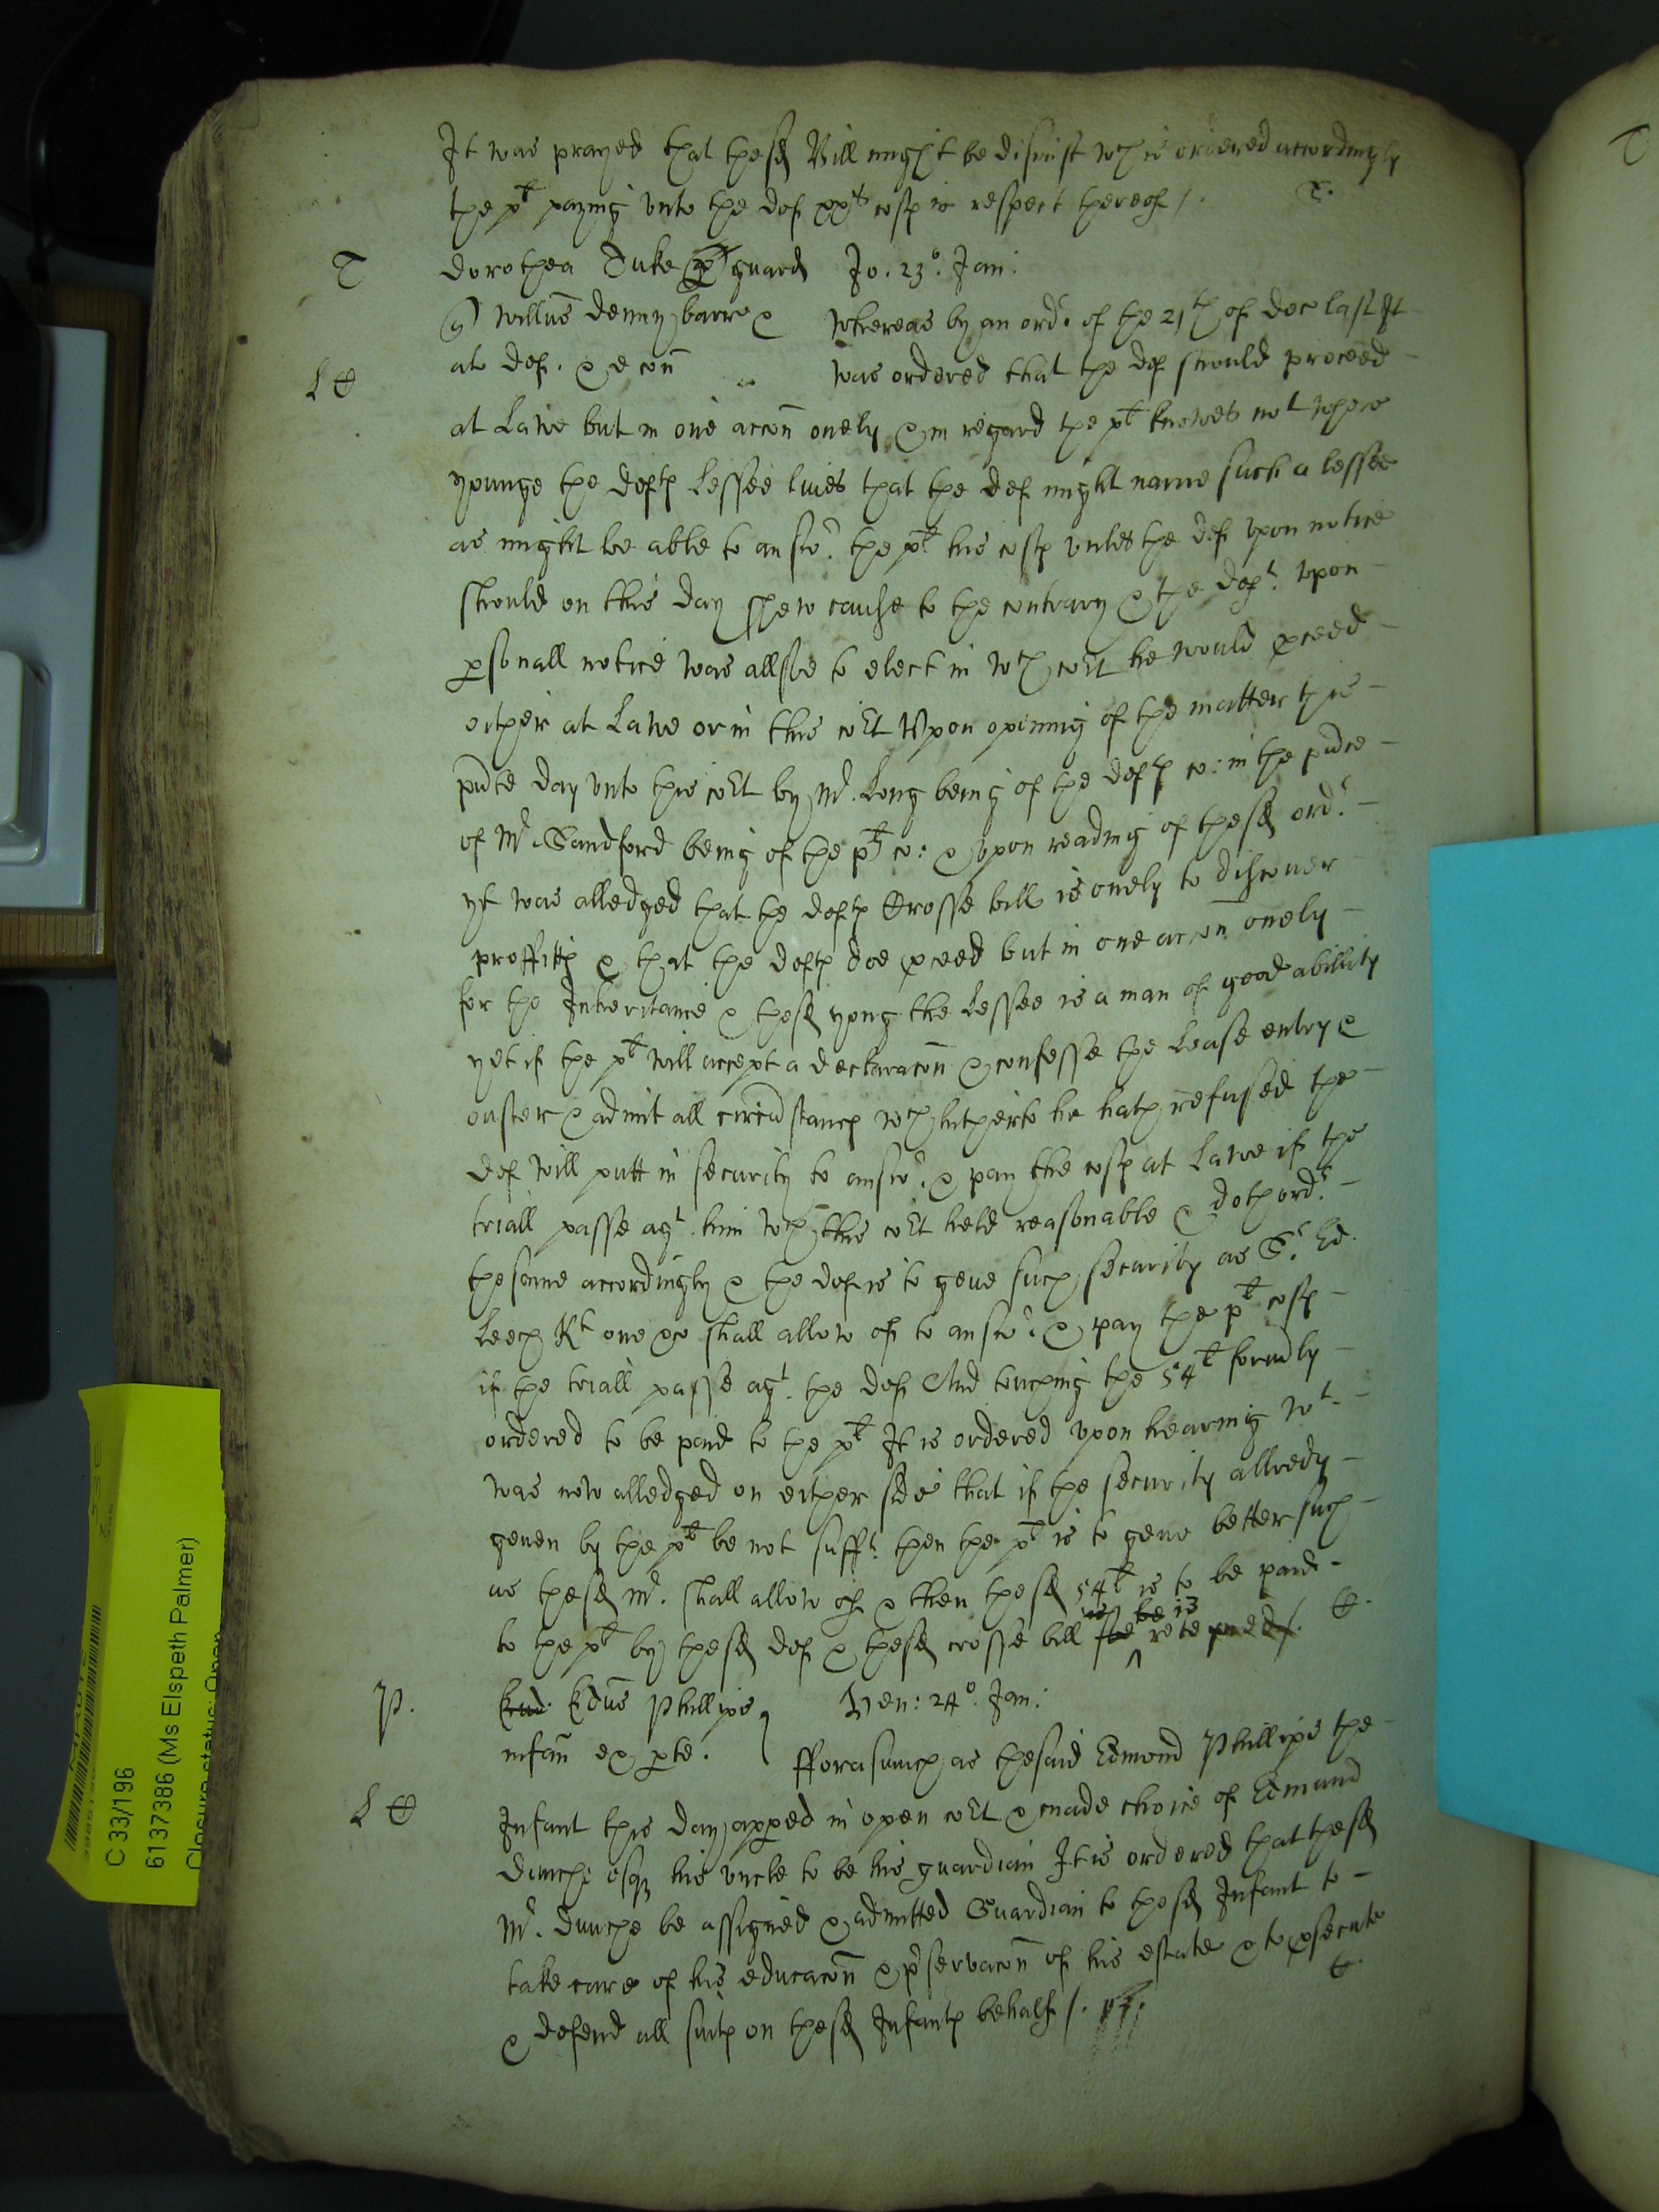 It was prayed that thesd Bill might be dismist wch is ordered accordingly
the plt paying unto the def xxs costs in respect thereof /. T.
T
Dorothea Tuke p guard Jo. 23o. Jan:
q Willus Denny barr &
al def. & e con
whereas by an ordr of the 21th of Dec last It
was ordered that the def should proceed
at Lawe but in one accon onely & in regard the plt knowes not where
younge the defts Lessee lives that the def might name such a lessee
as might be able to answr. the plt his costs unles the def upon notice
should on this day shew cause to the contrary & the deft. upon
psonall notice was allsoe to elect in wch cort he would pceed
either at Lawe or in this cort Upon opening of the matter this
pnte day unto this cort by Mr. Long being of the defts co: in the pnce
of Mr. Sandford being of the plts co: & upon reading of thesd ordr.
yt was alledged that the defts Crosse bill is onely to discover
proffitts & that the defts doe pceed but in one accon onely
for the Inheritance & thesd yong the Lessee is a man of good abillity
yet if the plt will accept a declaracon & confesse the Lease entry &
ouster & admit all circumstancs wch hitherto he hath refused the
def will putt in security to answr. & pay the costs at Lawe if the
triall passe agt. him wch this cort held reasonable & doth ordr.
the same accordingly & the def is to geve such security as Sr. Ed.
Leech Kt one &c shall allow of to answr. & pay the plt costs
if the triall passe agt. the def And touching the 54l formly
ordered to be paid to the plt It is ordered upon hearing wt.
was now alledged on either side that if the security allredy
geven by the plt be not sufft. then the plt is to geve better such
as thesd Mr. shall allow of & then thesd 54l is to be paid
to the plt by thesd def & thesd crosse bill is reteyned /. E.
P.
Edus Phillips
infan ex pte.
Ven: 24o. Jan:
fforasmuch as the said Edmond Phillips the
Infant this day apped in open cort & made choice of Edmund
Dunch esqr his uncle to be his guardian It is ordered that thesd
Mr. Dunche be assigned & admitted Guardian to thesd Infant to
take care of his educacon & pservacon of his estate & to psecute
& defend all suits on thesd Infants behalf /. E.
C 33/196
6137386 (Ms Elspeth Palmer)
Closure status: Open